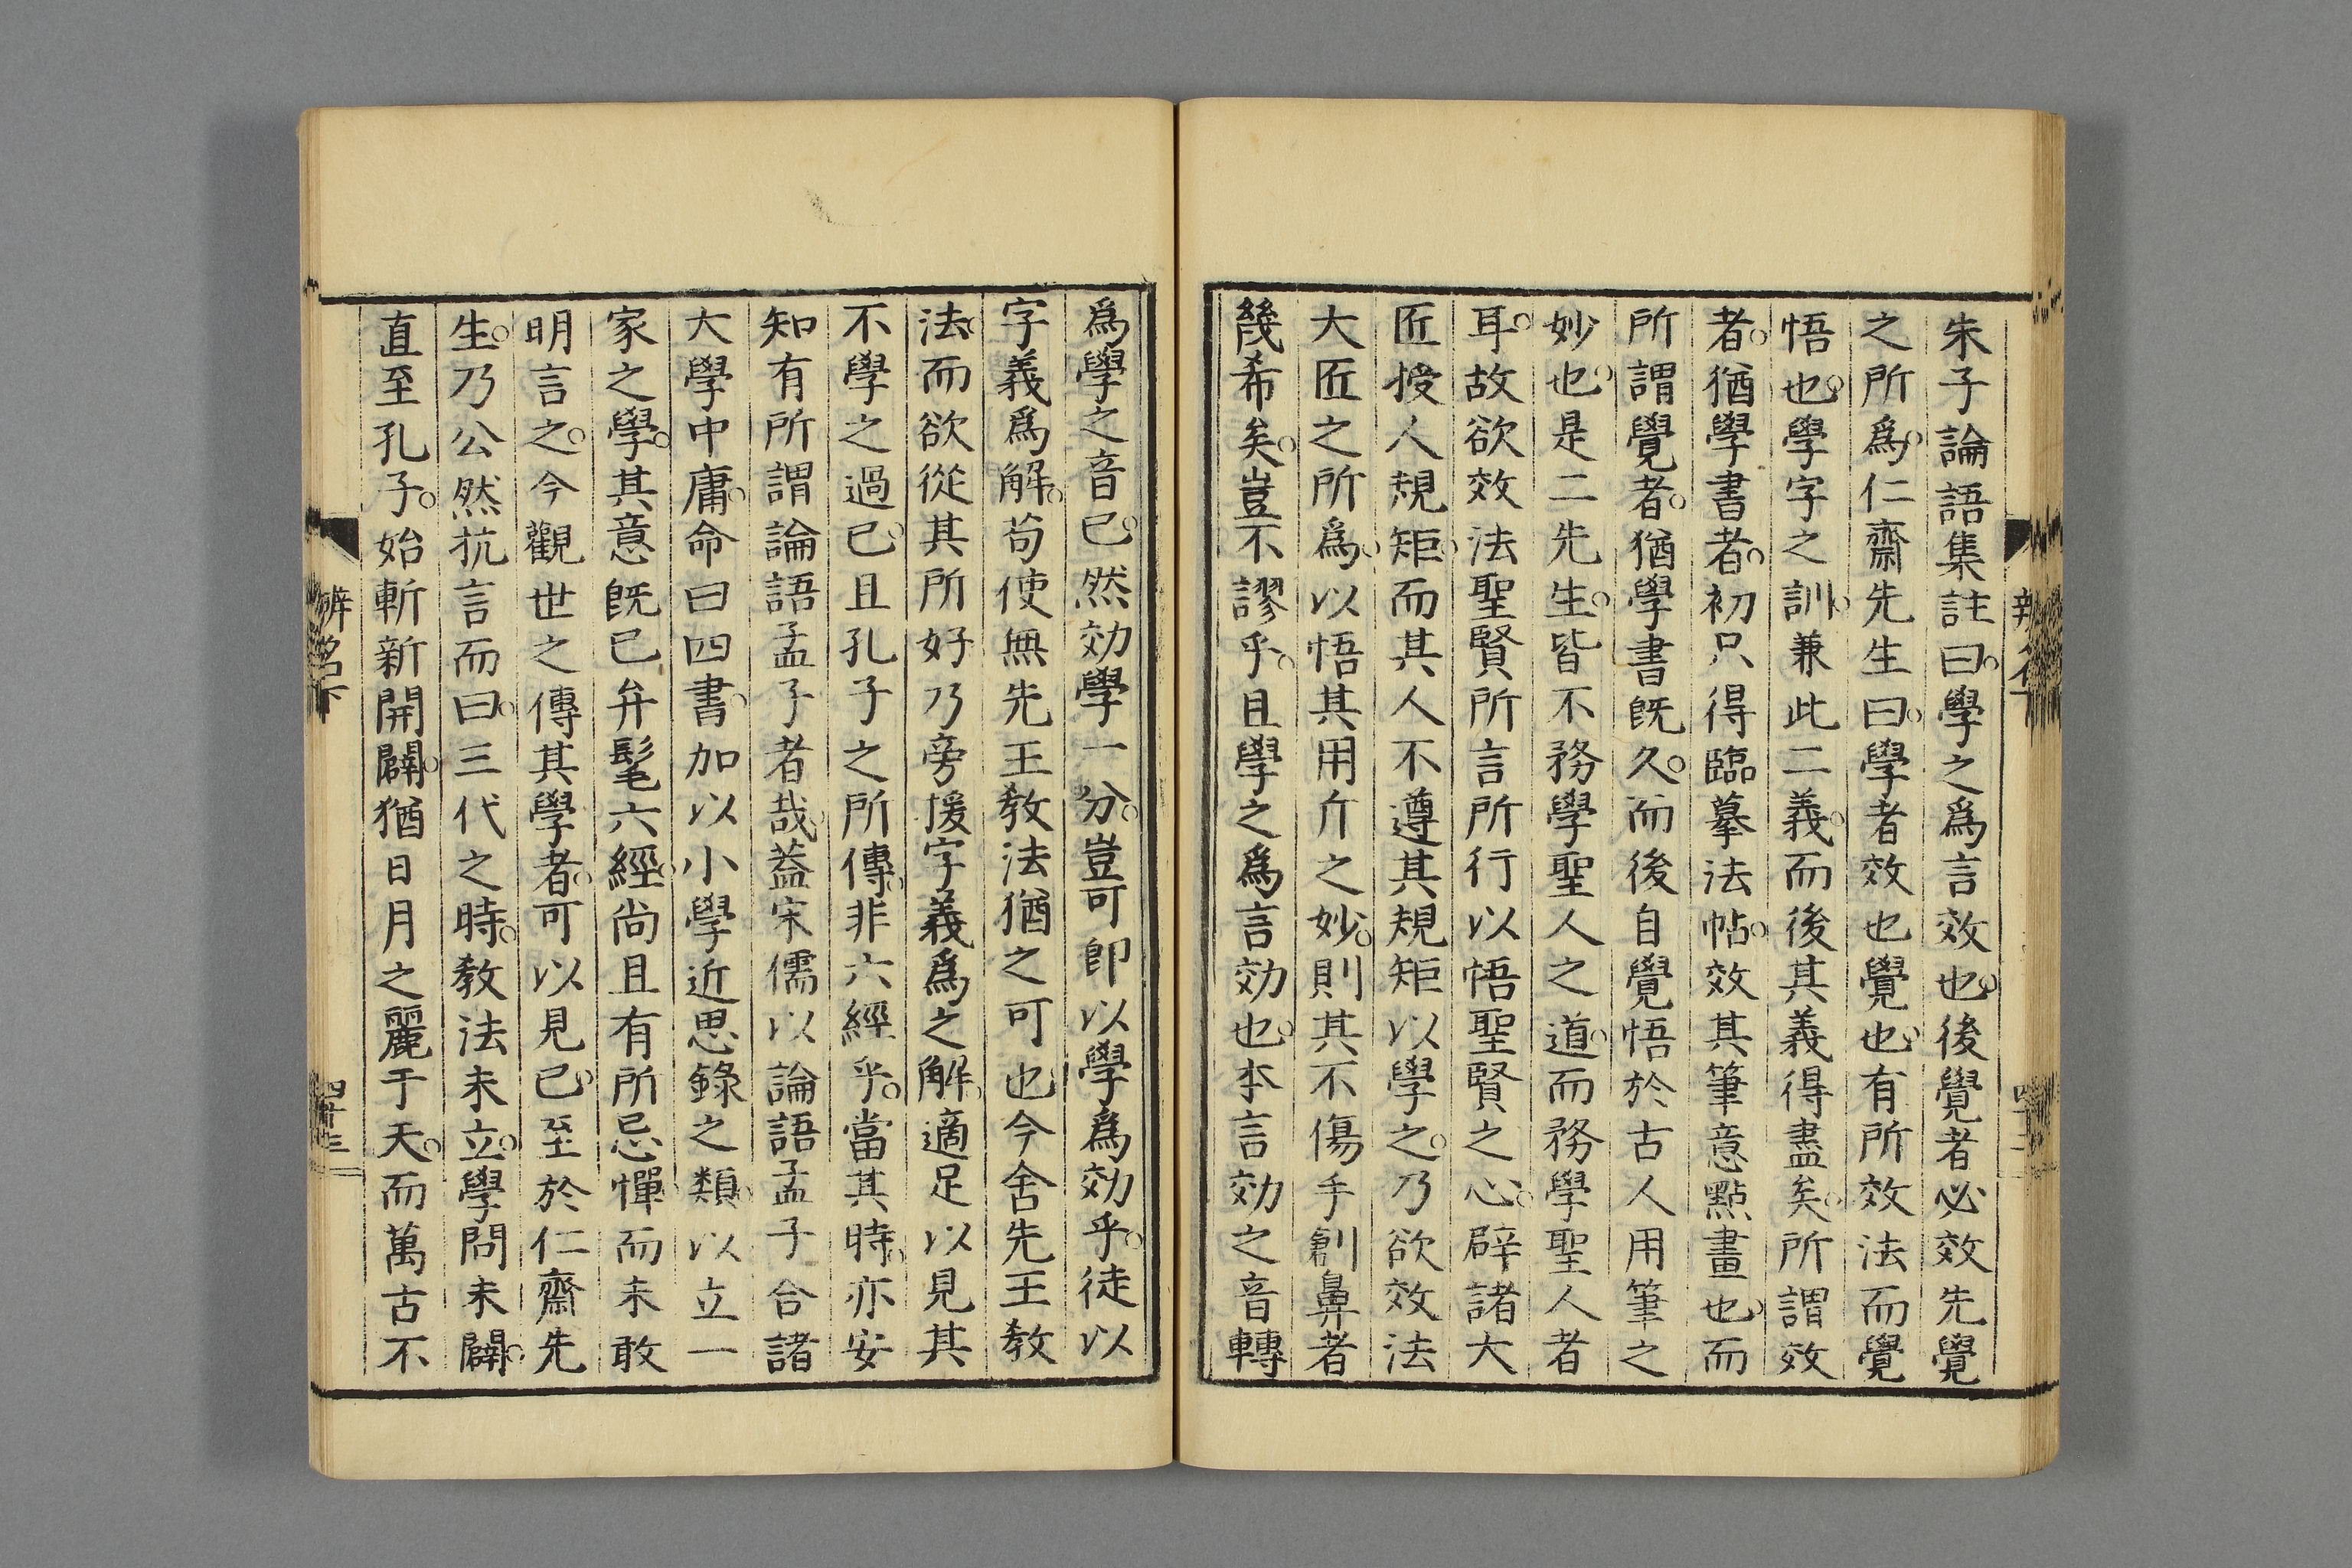 朱子論語集註曰。學之爲言效也。後覺者必效先覺
之所爲。仁齋先生曰。學者效也。覺也。有所效法而覺
悟也。學字之訓。兼此二義。而後其義得盡矣。所謂效
者。猶學書者。初只得臨摹法帖。效其筆意點畫也。而
所謂覺者。猶學書既久。而後自覺悟於古人用筆之
妙也。是二先生。皆不務學聖人之道。而務學聖人者
耳。故欲效法聖賢所言所行以悟聖賢之心。辟諸大
匠授人規矩。而其人不遵其規矩以學之。乃欲效法
大匠之所爲。以悟其用斤之妙。則其不傷手創鼻者
幾希矣。豈不謬乎。且學之爲言効也。本言効之音轉
爲學之音已。然効學一分。豈可即以學爲効乎。徒以
字義爲解。苟使無先王教法猶之可也。今舍先王教
法。而欲從其所好乃旁援字義爲之解。適足以見其
不學之過已。且孔子之所傳。非六經乎。當其時。亦安
知有所謂論語孟子者哉。蓋宋儒以論語孟子合諸
大學中庸。命曰四書。加以小學近思錄之類。以立一
家之學。其意既已弁髦六經。尚且有所忌憚而未敢
明言之。今觀世之傳其學者。可以見已。至於仁齋先
生。乃公然抗言而曰。三代之時。教法未立。學問未闢。
直至孔子。始斬新開闢。猶日月之麗于天。而萬古不
辨名下
四十三